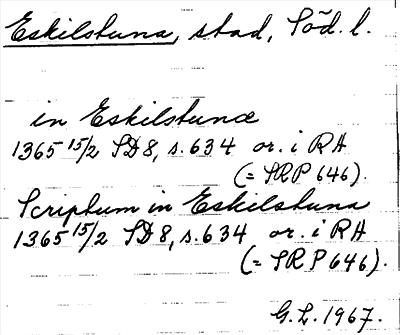 Eskilstuna, stad, Söd. l.
in Eskilstunæ
1365 15/2 SD8, s. 634 or. i RA
(= SRP 646).
Scriptum in Eskilstuna
1365 15/2 SD8, s. 634 or. i RA
(= SRP 646).
G.L. 1967.